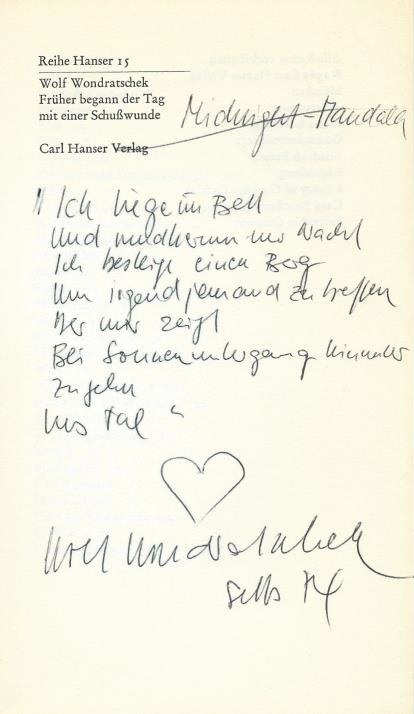 Reihe Hanser 15
Wolf Wondratschek
Früher begann der Tag
mit einer Schußwunde
Midnight-Mandala
Carl Hanser Verlag
"Ich liege im Bett
Und rundherum nur Nacht
Ich besteige einen Berg
Um irgendjemand zu treffen
Der mir zeigt
Bei Sonnenuntergang hinunter
zu gehn
Ins Tal"
Wolf Wondratschek